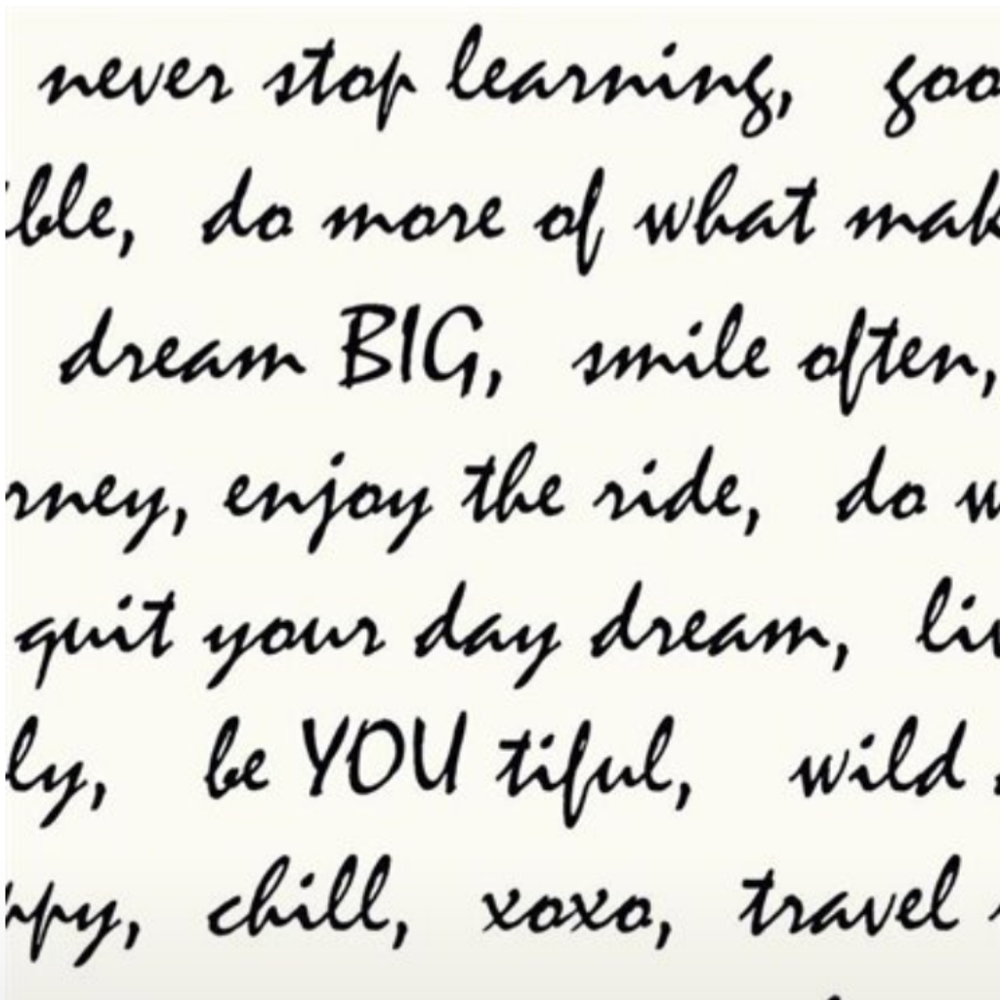 never stop learning, goo
ble, do more of what mak
dream BIG, smile often,
rney, enjoy the ride, do w
quit your day dream, liv
ly, be YOU tiful, wild
ppy, chill, xoxo, travel